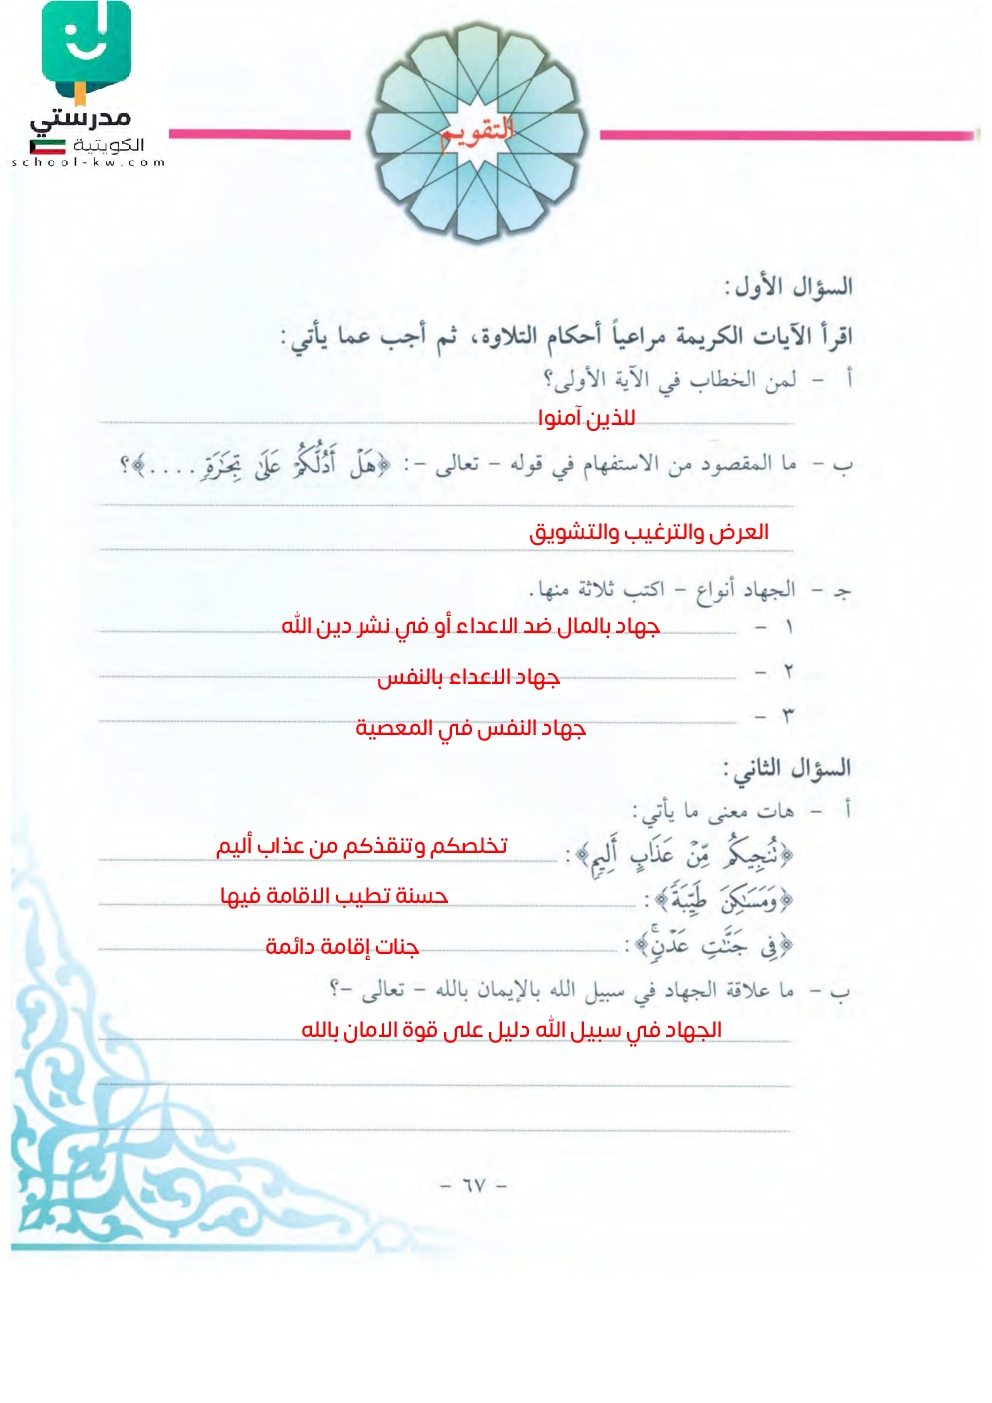 مدرستي
الكويتية
school-kw.com
التقويم
السؤال الأول:
اقرأ الآيات الكريمة مراعياً أحكام التلاوة، ثم أجب عما يأتي:
أ - لمن الخطاب في الآية الأولى؟
للذين آمنوا
ب - ما المقصود من الاستفهام في قوله - تعالى -: ﴿هَلْ أَدُلُّكُمْ عَلَىٰ تِجَٰرَةٍ ....﴾؟
العرض والترغيب والتشويق
جـ - الجهاد أنواع - اكتب ثلاثة منها.
١ - جهاد بالمال ضد الاعداء أو في نشر دين الله
٢ - جهاد الاعداء بالنفس
٣ - جهاد النفس في المعصية
السؤال الثاني:
أ - هات معنى ما يأتي:
﴿تُنجِيكُم مِّنْ عَذَابٍ أَلِيمٍ﴾: تخلصكم وتنقذكم من عذاب أليم
﴿وَمَسَٰكِنَ طَيِّبَةً﴾: حسنة تطيب الاقامة فيها
﴿فِى جَنَّٰتِ عَدْنٍۚ﴾: جنات إقامة دائمة
ب - ما علاقة الجهاد في سبيل الله بالإيمان بالله - تعالى -؟
الجهاد في سبيل الله دليل على قوة الامان بالله
- ٦٧ -